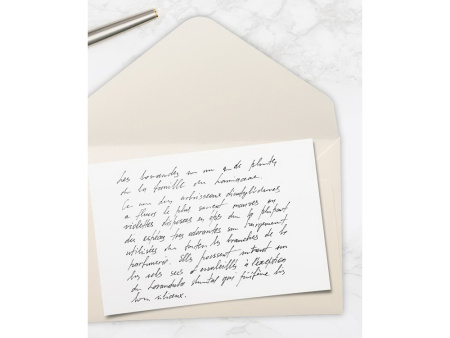 Les lavandes sont un genre de plantes
de la famille des lamiacées
Ce sont des arbrisseaux dicotylédones
à fleurs le plus souvent mauves ou
violettes disposées en épis dont la plupart
des espèces très odorantes sont largement
utilisées dans toutes les branches de la
parfumerie. Elles poussent surtout sur
les sols secs et ensoleillés à l'exception
du Lavandula stoechas que préfère les
sols siliceux.